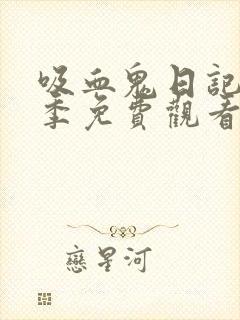 吸血鬼日記
季免費觀看
戀星河